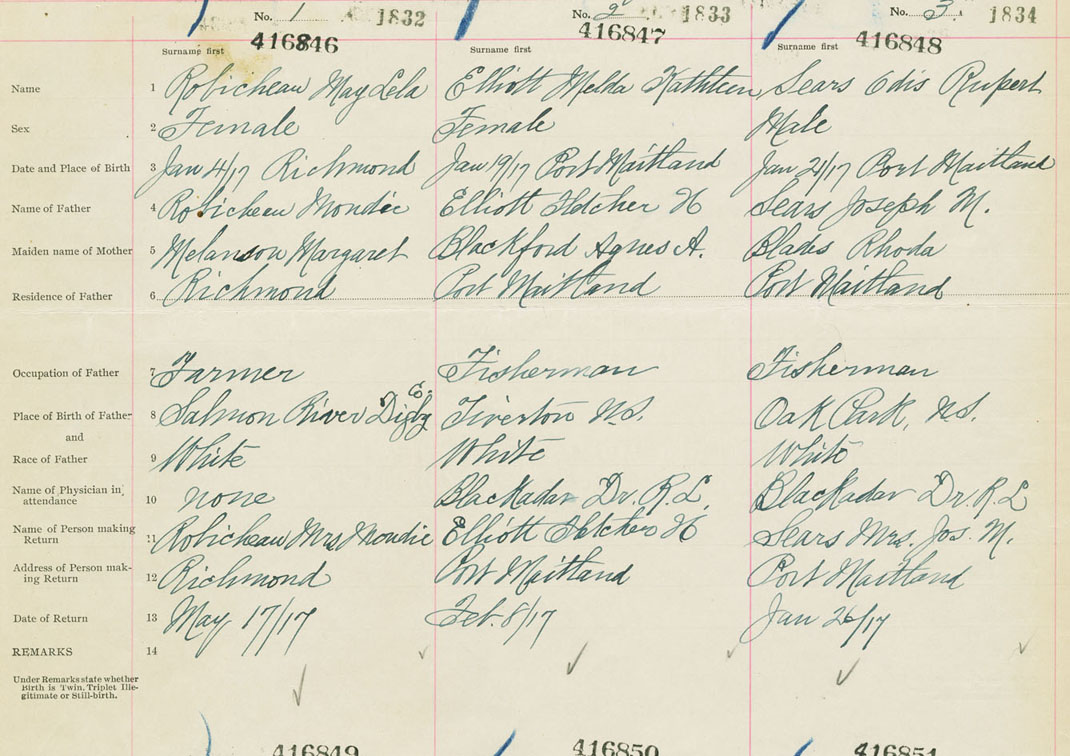 No. 1 1832 No. 2 1833 No. 3 1834
416846 416847 416848
Surname first Surname first Surname first
Name 1 Robicheau May Lela Elliott Melda Kathleen Sears Odis Rupert
Sex 2 Female Female Male
Date and Place of Birth 3 Jan 4/17 Richmond Jan 19/17 Port Maitland Jan 21/17 Port Maitland
Name of Father 4 Robicheau Mondie Elliott Fletcher H Sears Joseph M.
Maiden name of Mother 5 Melanson Margaret Blackford Agnes A. Blades Rhoda
Residence of Father 6 Richmond Port Maitland Port Maitland
Occupation of Father 7 Farmer Fisherman Fisherman
Place of Birth of Father 8 Salmon River Digby Co. Tiverton N.S. Oak Park, N.S.
and
Race of Father 9 White White White
Name of Physician in
attendance 10 none Blackadar Dr. R. L. Blackadar Dr. R. L
Name of Person making
Return 11 Robicheau Mrs Mondie Elliott Fletcher H Sears Mrs. Jos. M.
Address of Person mak-
ing Return 12 Richmond Port Maitland Port Maitland
Date of Return 13 May 17/17 Feb. 8/17 Jan 26/17
REMARKS 14
Under Remarks state whether
Birth is Twin, Triplet Ille-
gitimate or Still-birth.
416849 416850 416851